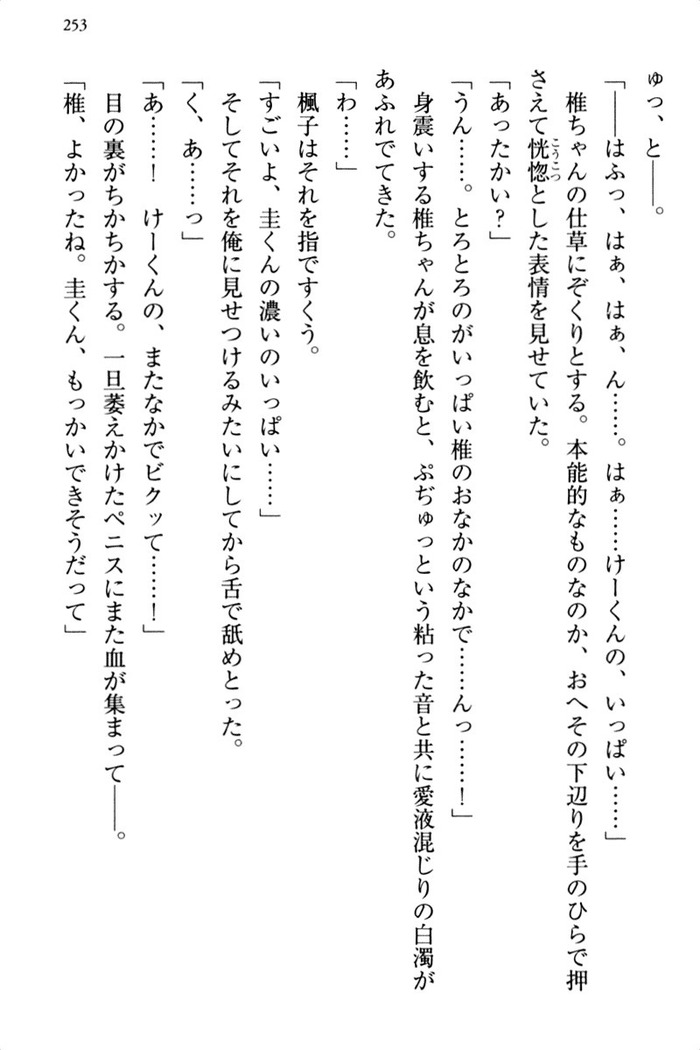 253
ゅつ、と――。
「――はふっ、はぁ、はぁ、ん……。はぁ……けーくんの、いっぱい……」
椎ちゃんの仕草にぞくりとする。本能的なものなのか、おへその下辺りを手のひらで押
さえて恍惚とした表情を見せていた。
こうこつ
「あったかい?」
「うん……。とろとろのがいっぱい椎のおなかのなかで……んっ……!」
身震いする椎ちゃんが息を飲むと、ぷぢゅっという粘った音と共に愛液混じりの白濁が
あふれでてきた。
「わ……」
楓子はそれを指ですくう。
「すごいよ、圭くんの濃いのいっぱい……」
そしてそれを俺に見せつけるみたいにしてから舌で舐めとった。
「く、あ……っ」
「あ……! けーくんの、またなかでビクッて……!」
目の裏がちかちかする。一旦萎えかけたペニスにまた血が集まって――。
「椎、よかったね。圭くん、もっかいできそうだって」